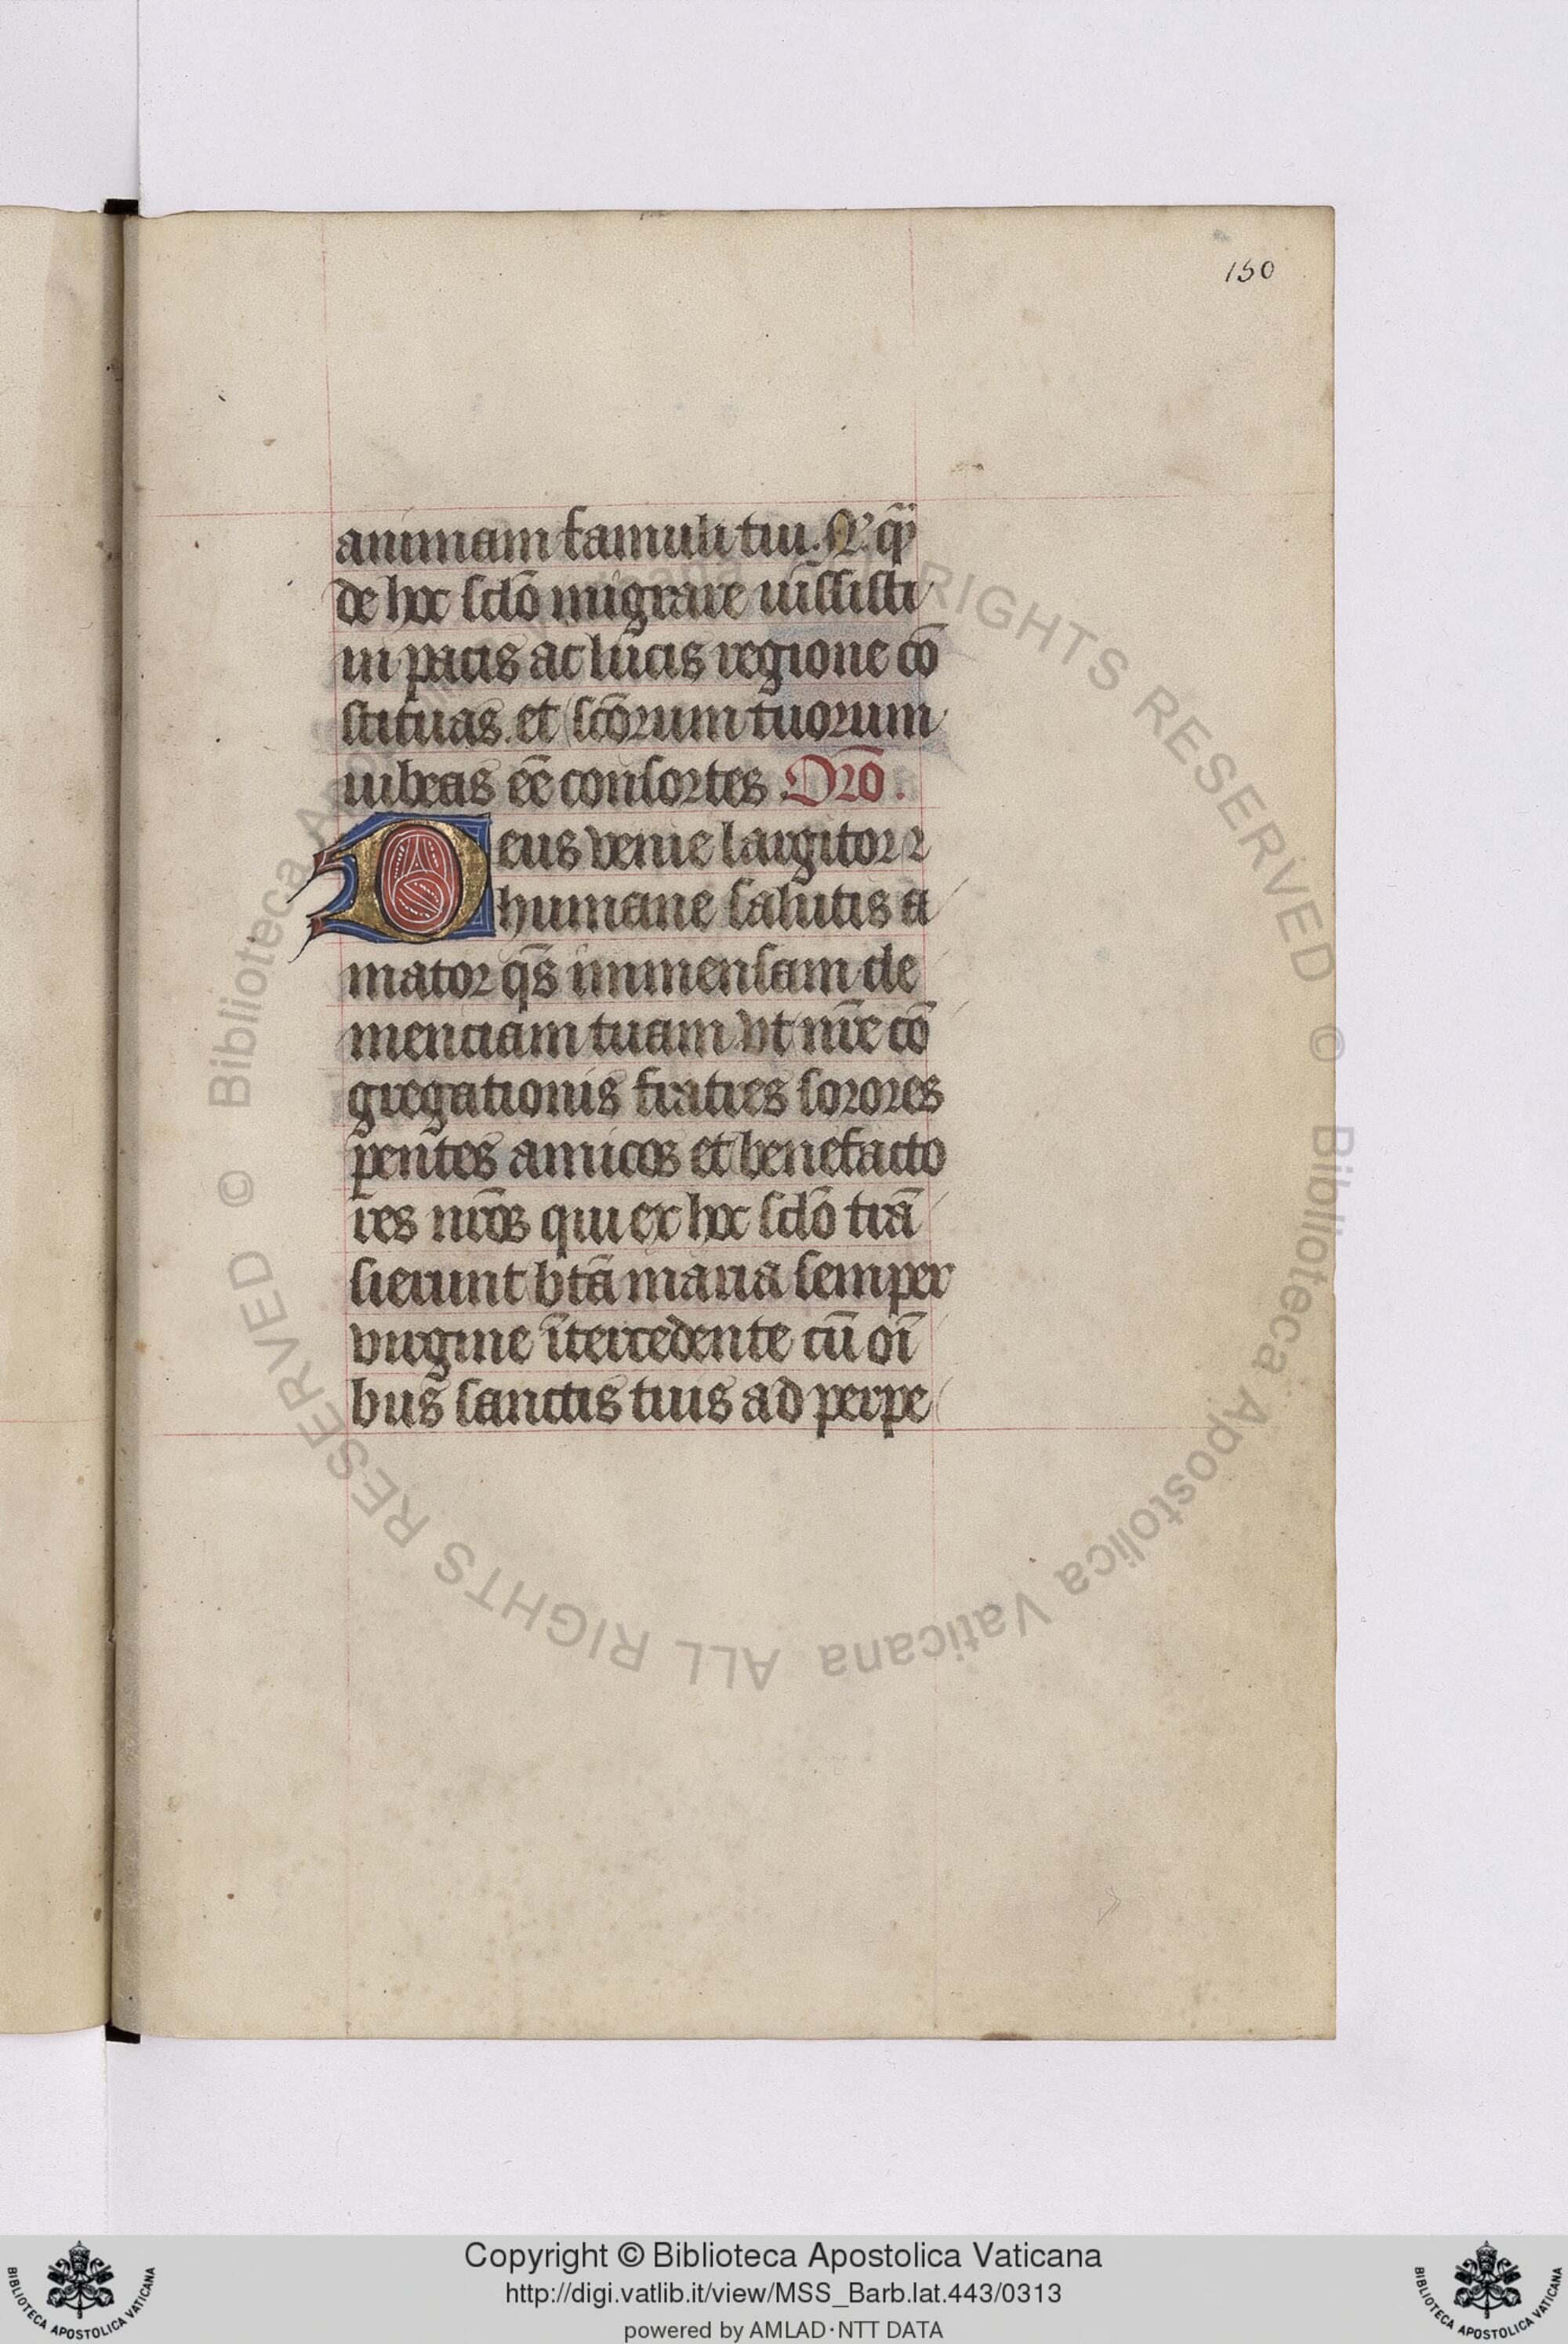 150
animam famuli tui. N. qͣ
de hoc sclō migrare iussisti
in pacis ac lucis regione cō
stituas. et scōrum tuorum
iubeas eē consortes. Orō.
Deus venie largitor ⁊
humane salutis a
mator qs̄ immensam cle
menciam tuam. vt nr̄e cō
gregationis fratres sorores
ꝑentes amicos et benefacto
res nr̄os qui ex hoc sclō trā
sierunt btā maria semper
virgine ītercedente cū oī
bus sanctis tuis ad perpe
© Biblioteca Apostolica Vaticana ALL RIGHTS RESERVED
© Biblioteca Apostolica Vaticana ALL RIGHTS RESERVED
Copyright © Biblioteca Apostolica Vaticana
http://digi.vatlib.it/view/MSS_Barb.lat.443/0313
powered by AMLAD·NTT DATA
BIBLIOTECA APOSTOLICA VATICANA
BIBLIOTECA APOSTOLICA VATICANA